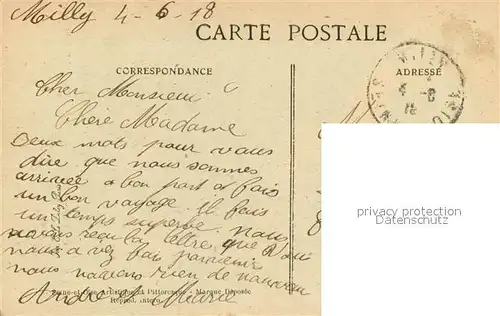 Milly 4-6-18
CARTE POSTALE
CORRESPONDANCE
ADRESSE
Cher Monsieur
Chère Madame
Deux mots pour vous
dire que nous sommes
arrivée a bon port et fais
un bon voyage. Il fais
un temps superbe. nous
avons reçu la lettre que Vous
nous avez fais parvenir
nous navons rien de nouveau
André et Marie
Seine-et-Oise Artistique et Pittoresque - Marque Déposée
Reprod. interd.
privacy protection
Datenschutz